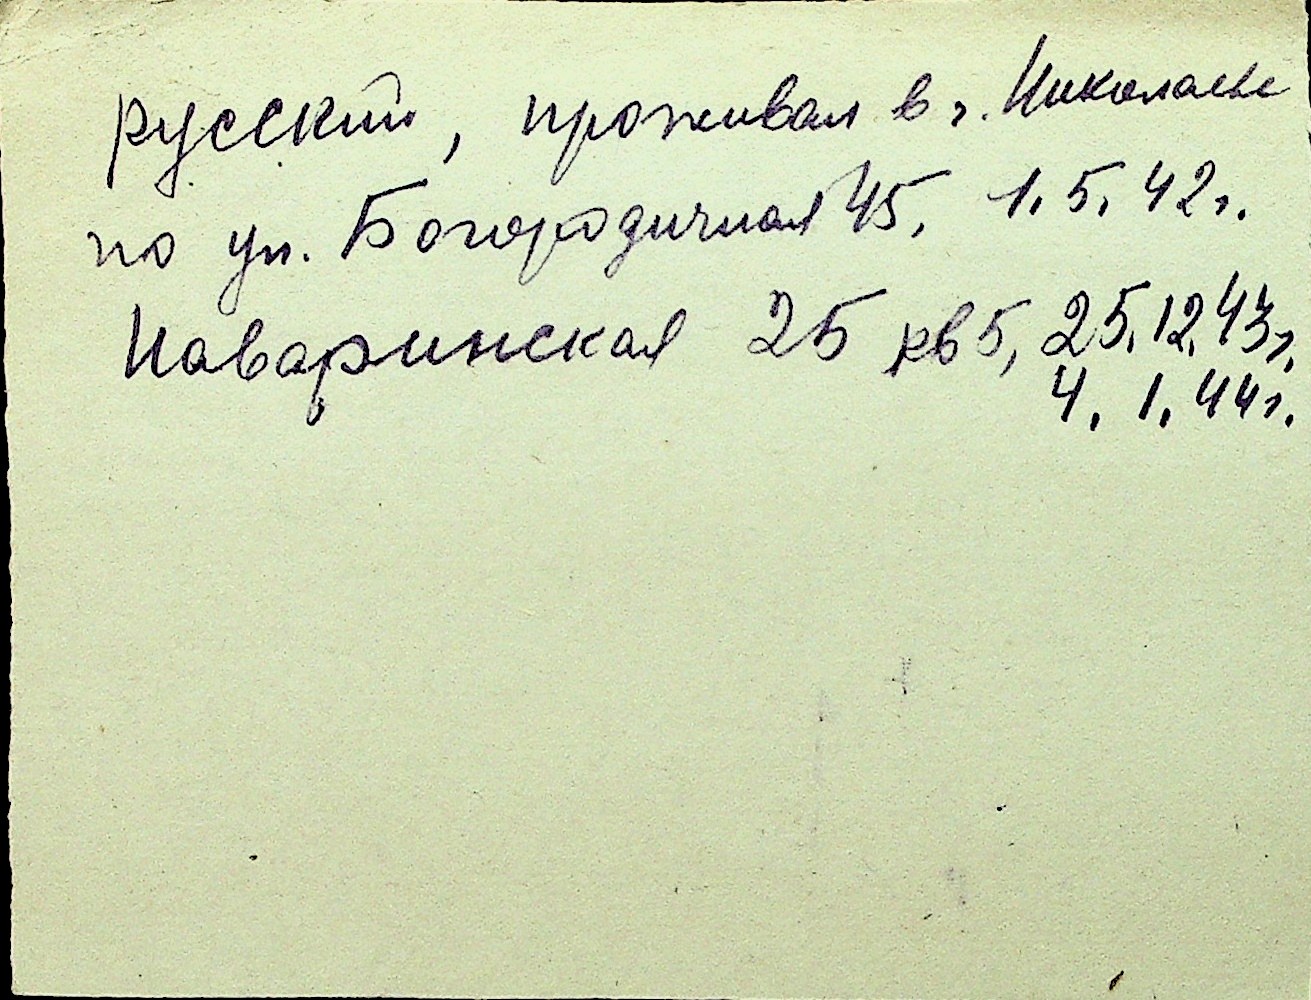 русский, проживал в г. Николаеве
по ул. Богородичная 45, 1.5.42г.
Наваринская 25 кв 5, 25.12.43г.
4.1.44г.